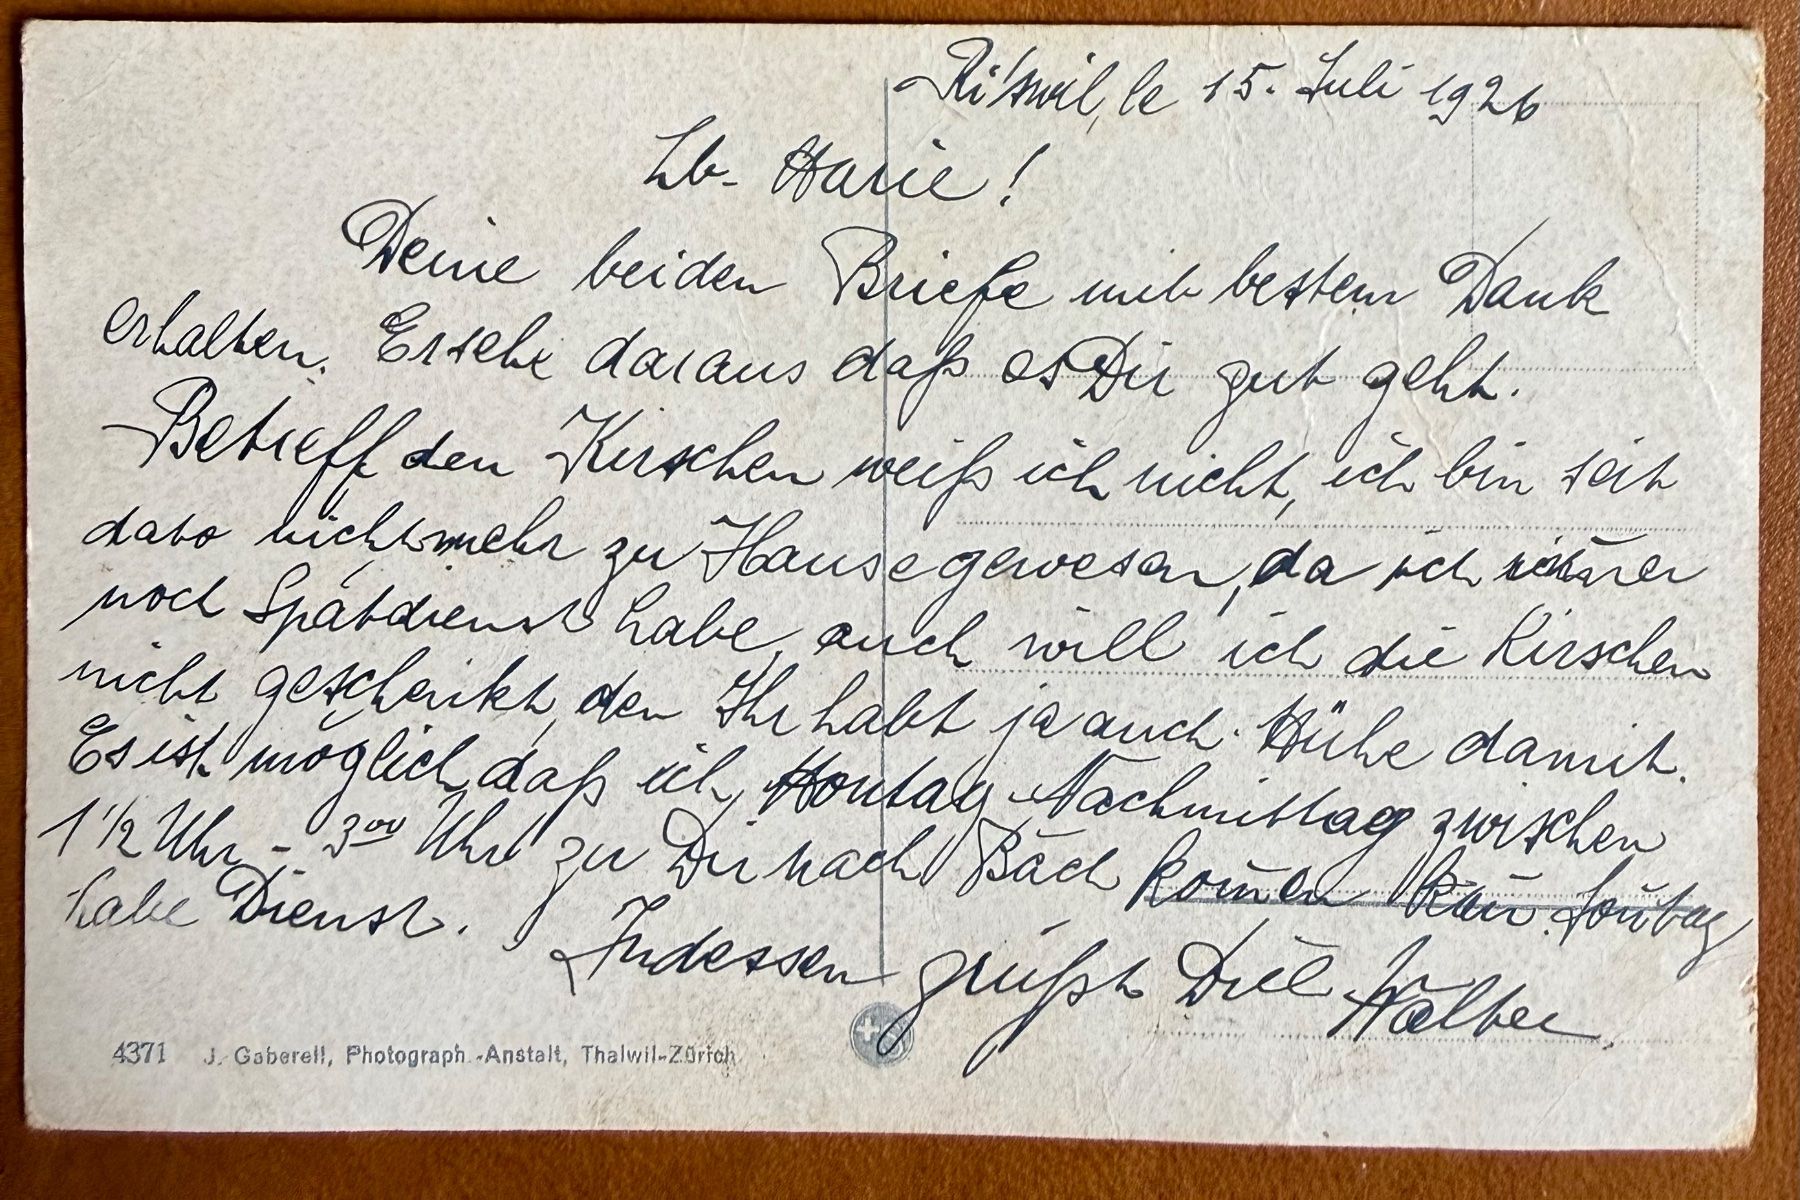 Ri'swil, le 15. Juli 1926
Lb. Marie!
Deine beiden Briefe mit bestem Dank
erhalten. Ersehe daraus daß es Dir gut geht.
Betreff den Kirschen weiß ich nicht, ich bin seit
dato nicht mehr zu Hause gewesen, da ich
noch Spätdienst habe, auch will ich die Kirschen
nicht geschenkt, den Ihr habt ja auch Mühe damit.
Es ist möglich, daß ich, Montag Nachmittag zwischen
1 1/2 Uhr - 3 00 Uhr zu Dir nach Bäch kom̄en kan̄. Son̄tag
habe Dienst.
Indessen grüßt Dich Walter
4371 J. Gaberell, Photograph.-Anstalt, Thalwil-Zürich